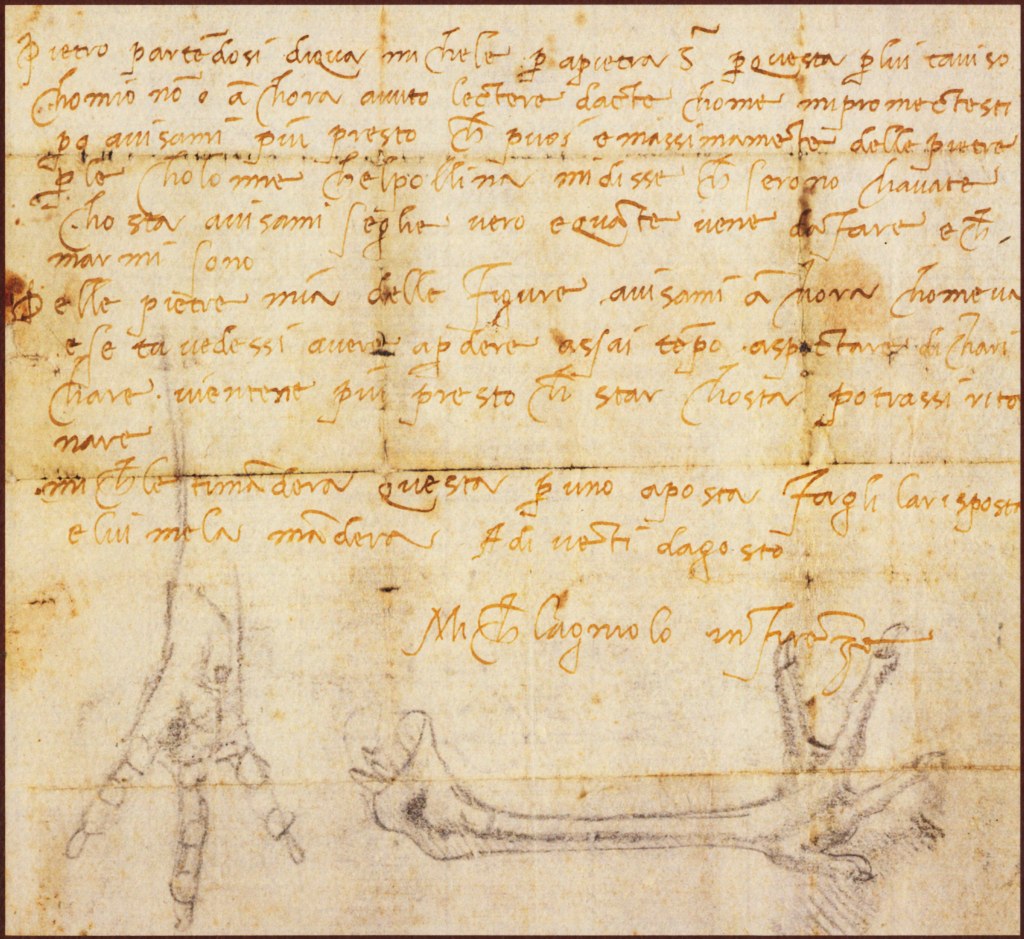 Pietro partēdosi diqua michele p̄ apietra S̄ p̄ questa p̄lui taviso
chomio nō o āchora avuto lectere dacte chome mi promectesti
po avisami più presto ch̄ puoi e massimamēte delle pietre
p̄ le cholonne chelpollina midisse ch̄ serono chavate
chosta avisami seglie vero e quāte vene da fare e ch̄
marmi sono
Delle pietre mia delle figure avisami āchora chome va
e se tu vedessi avere ap̄dere assai tēpo aspectare dichari
chare vientene più presto ch̄ star chosta potrassi rito
nare
mich̄le timāderà questa p̄ uno aposta fagli la risposta
e lui mela māderà Adi vēti dagosto
Mich̄lagniolo in firenze